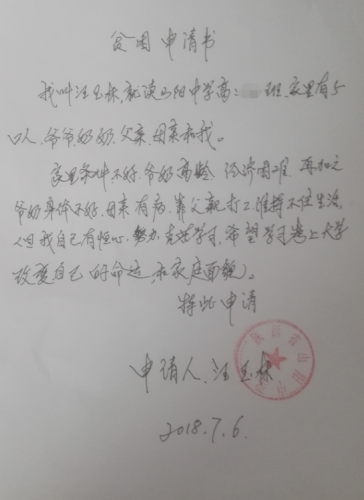 贫困申请书
我叫汪玉林,就读山阳中学高二 班,家里有5
口人,爷爷奶奶,父亲,母亲和我。
家里条件不好,爷奶高龄 经济困难 再加之
爷奶身体不好,母亲有病,靠父亲打工维持不住生活,
但我自己有恒心,努力,克苦学习,希望学习考上大学
改变自己的命运,和家庭面貌。
特此申请
申请人,汪玉林
2018.7.6.